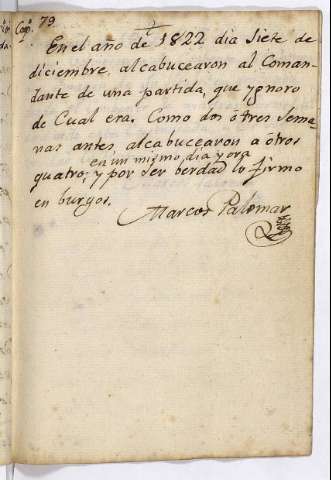 Cap.º 79
En el ano de 1822 dia Siete de
diciembre, alcabucearon al Coman-
dante de una partida, que ygnoro
de Cual era. Como dos ó tres Sema-
nas antes, alcabucearon a ótros
en un mismo dia y ora
quatro; y por ser berdad lo firmo
en burgos.
Marcos Palomar